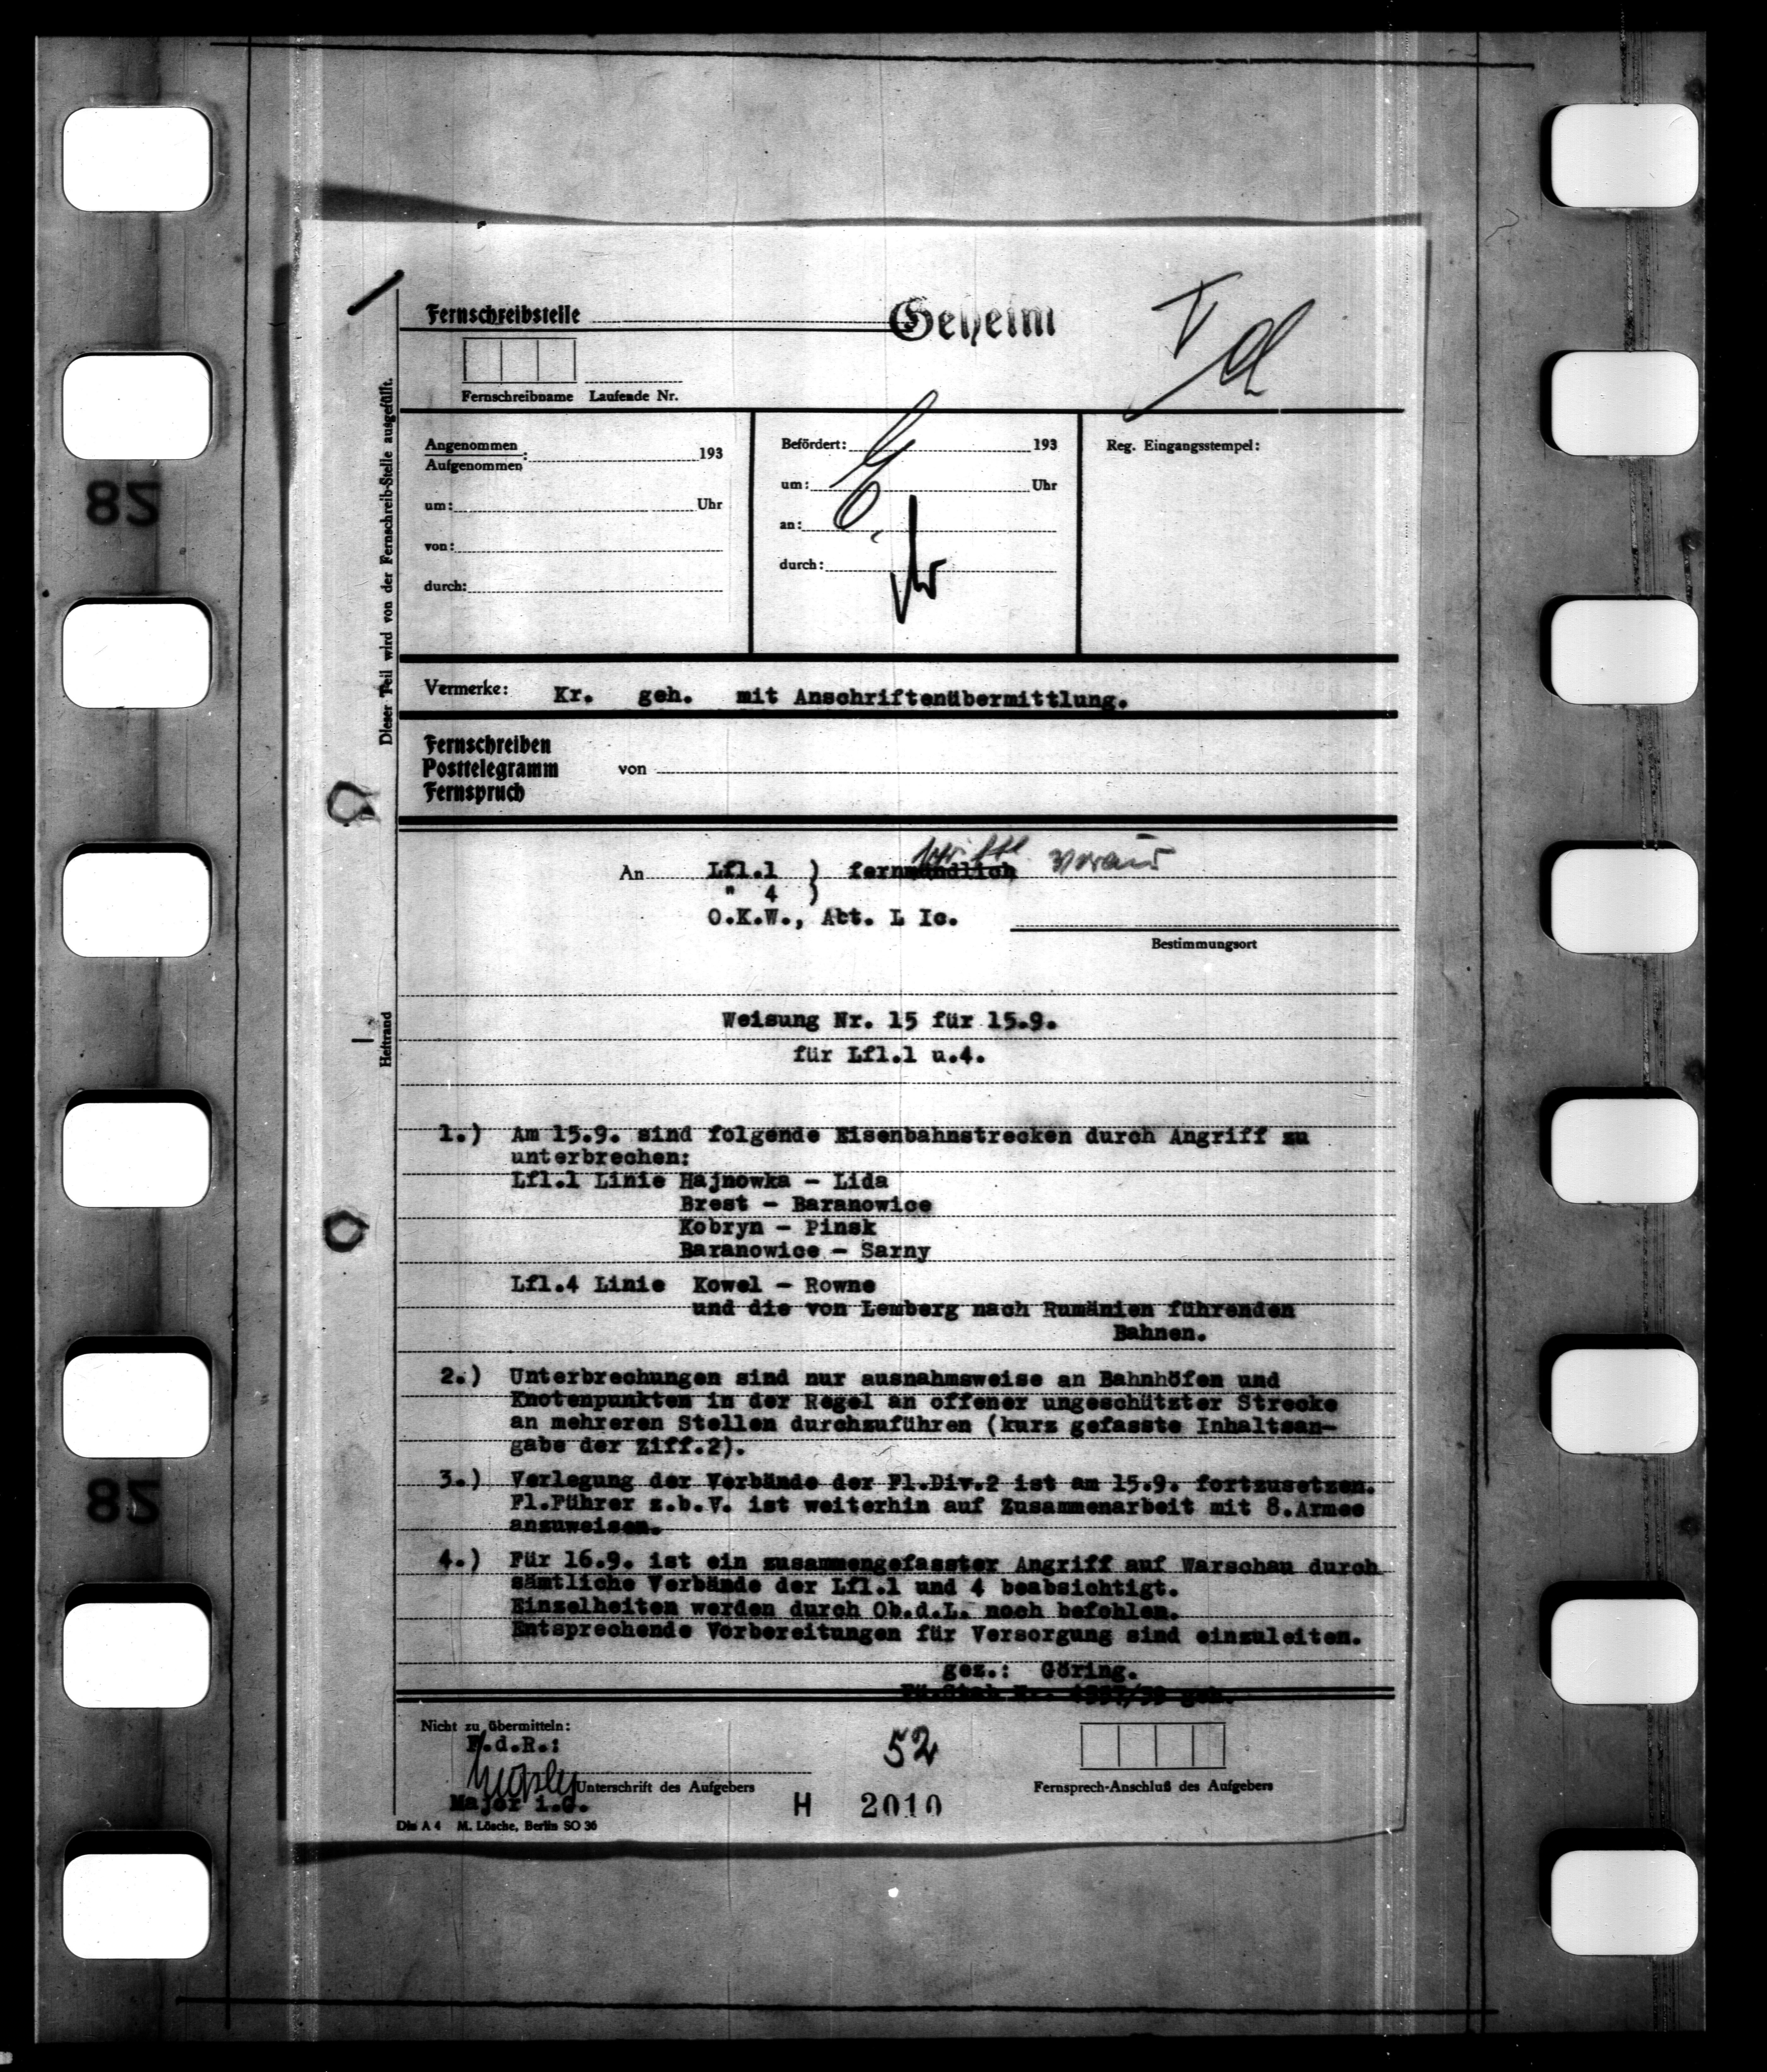 Fernschreibstelle
Geheim
Fernschreibname Laufende Nr.
Angenommen
Aufgenommen : 193
um: Uhr
von:
durch:
Befördert: 193
um: Uhr
an:
durch:
Reg. Eingangsstempel:
Dieser Teil wird von der Fernschreib-Stelle ausgefüllt.
Vermerke: Kr. geh. mit Anschriftenübermittlung.
Fernschreiben
Posttelegramm von
Fernspruch
voraus
An Lfl.1 ) fernmündlich
" 4 )
O.K.W., Abt. L Ic.
Bestimmungsort
Heftrand
Weisung Nr. 15 für 15.9.
für Lfl.1 u.4.
1.) Am 15.9. sind folgende Eisenbahnstrecken durch Angriff zu
unterbrechen:
Lfl.1 Linie Hajnowka - Lida
Brest - Baranowice
Kobryn - Pinsk
Baranowice - Sarny
Lfl.4 Linie Kowel - Rowne
und die von Lemberg nach Rumänien führenden
Bahnen.
2.) Unterbrechungen sind nur ausnahmsweise an Bahnhöfen und
Knotenpunkten in der Regel an offener ungeschützter Strecke
an mehreren Stellen durchzuführen (kurz gefasste Inhaltsan-
gabe der Ziff.2).
3.) Verlegung der Verbände der Fl.Div.2 ist am 15.9. fortzusetzen.
Fl.Führer z.b.V. ist weiterhin auf Zusammenarbeit mit 8.Armee
anzuweisen.
4.) Für 16.9. ist ein zusammengefasster Angriff auf Warschau durch
sämtliche Verbände der Lfl.1 und 4 beabsichtigt.
Einzelheiten werden durch Ob.d.L. noch befohlen.
Entsprechende Vorbereitungen für Versorgung sind einzuleiten.
gez.: Göring.
Fü.Stab Nr.
Nicht zu übermitteln:
F.d.R.:
Unterschrift des Aufgebers
Major i.G.
52
H 2010
Fernsprech-Anschluß des Aufgebers
Din A 4 M. Lösche, Berlin SO 36
82
82